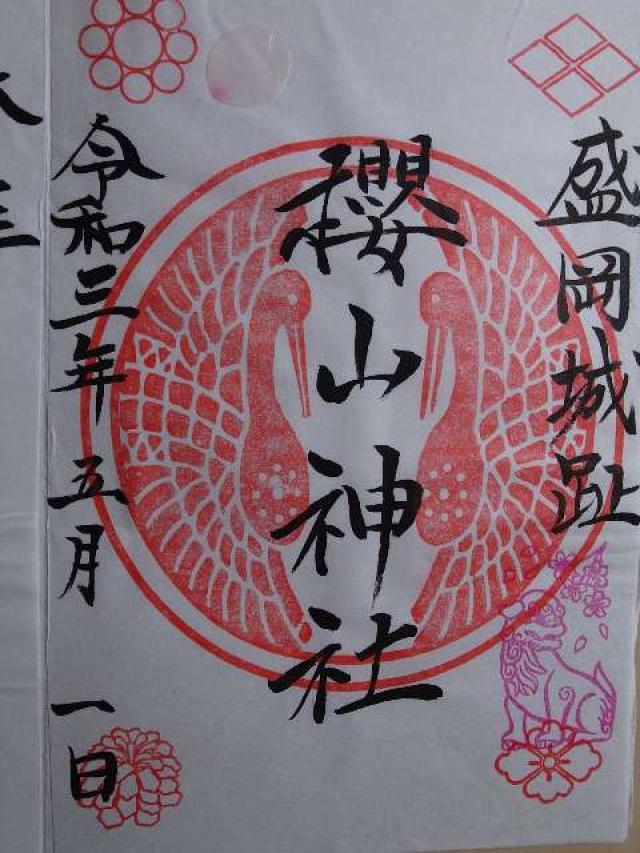 盛岡城趾
櫻山神社
令和三年五月一日